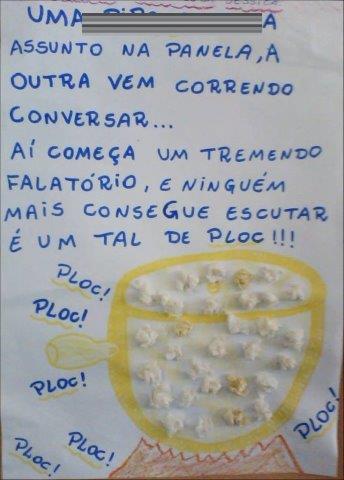 UMA
A
ASSUNTO NA PANELA, A
OUTRA VEM CORRENDO
CONVERSAR...
AÍ COMEÇA UM TREMENDO
FALATÓRIO, E NINGUÉM
MAIS CONSEGUE ESCUTAR
É UM TAL DE PLOC!!!
PLOC!
PLOC!
PLOC!
PLOC!
PLOC!
PLOC!